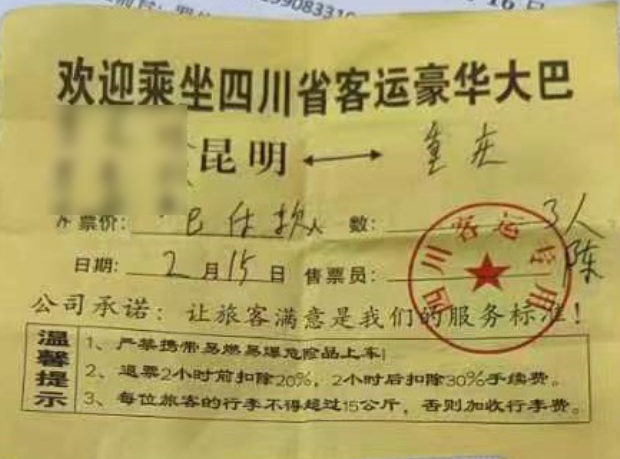 9908331
16日
欢迎乘坐四川省客运豪华大巴
昆明 ←→ 重庆
票价: 已付款 人数: 3人
日期: 2月15日 售票员: 陈
四川客运专用
公司承诺: 让旅客满意是我们的服务标准!
温馨提示
1、严禁携带易燃易爆危险品上车!
2、退票2小时前扣除20%, 2小时后扣除30%手续费。
3、每位旅客的行李不得超过15公斤, 否则加收行李费。